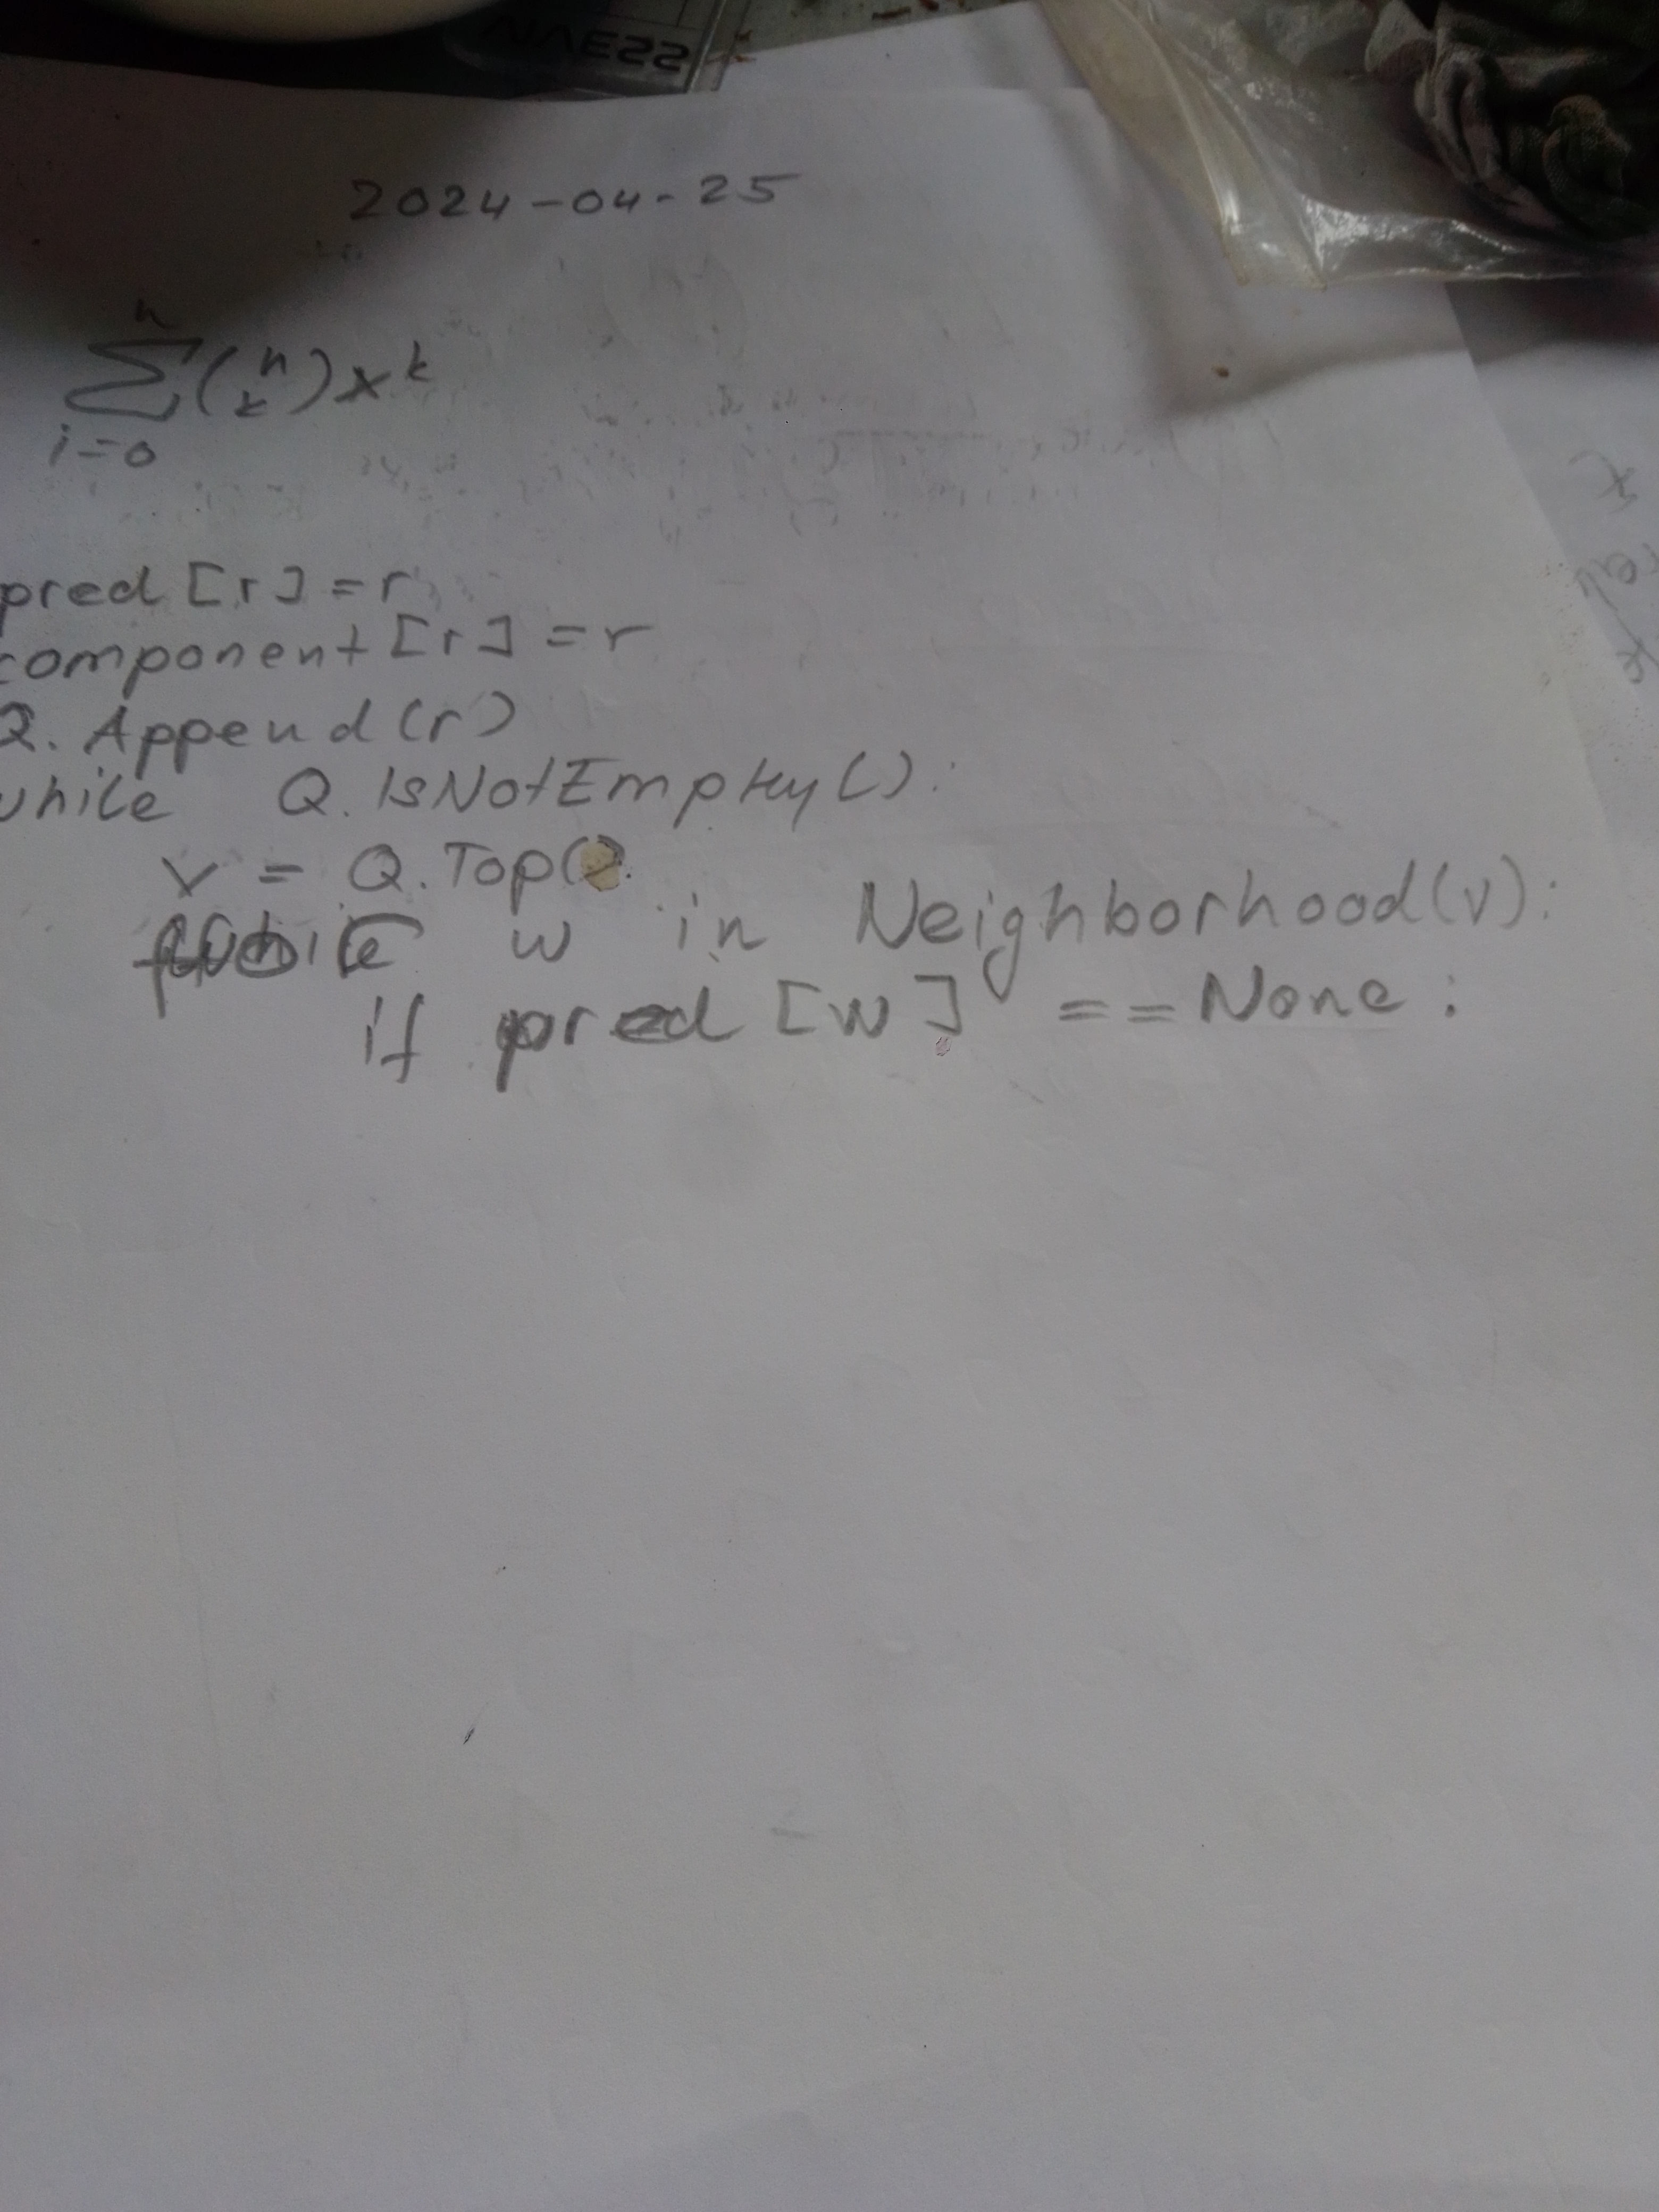 2024-04-25
n
∑(n k)x^k
i=0
pred[r]=r
component[r]=r
Q.Append(r)
while Q.IsNotEmpty():
v = Q.Top()
w in Neighborhood(v):
if pred[w] == None: